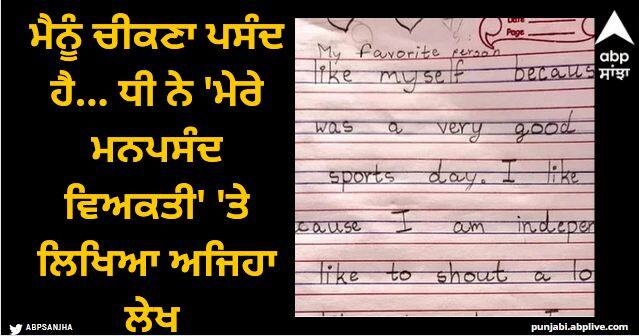 ਮੈਨੂੰ ਚੀਕਣਾ ਪਸੰਦ
ਹੈ... ਧੀ ਨੇ 'ਮੇਰੇ
ਮਨਪਸੰਦ
ਵਿਅਕਤੀ' 'ਤੇ
ਲਿਖਿਆ ਅਜਿਹਾ
ਲੇਖ
ABPSANJHA
Date
Page
My favorite person
like myself becaus
was a very good
sports day. I like
cause I am indepen
like to shout a lo
abp
ਸਾਂਝਾ
punjabi.abplive.com